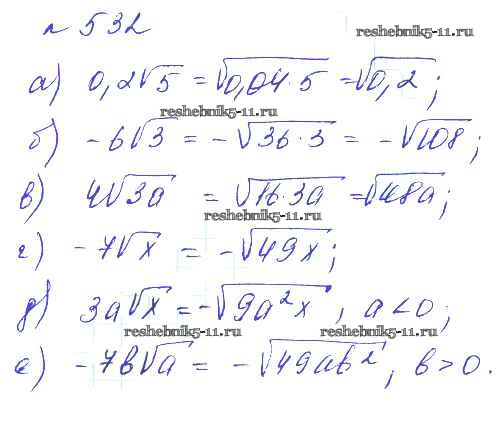 № 532
reshebnik5-11.ru
а) 0,2√5 = √0,04·5 = √0,2;
reshebnik5-11.ru
б) -6√3 = -√36·3 = -√108;
в) 4√3a = √16·3a = √48a;
reshebnik5-11.ru
г) -7√x = -√49x;
д) 3a√x = -√9a²x, a<0;
reshebnik5-11.ru reshebnik5-11.ru
е) -7b√a = -√49ab², b>0.